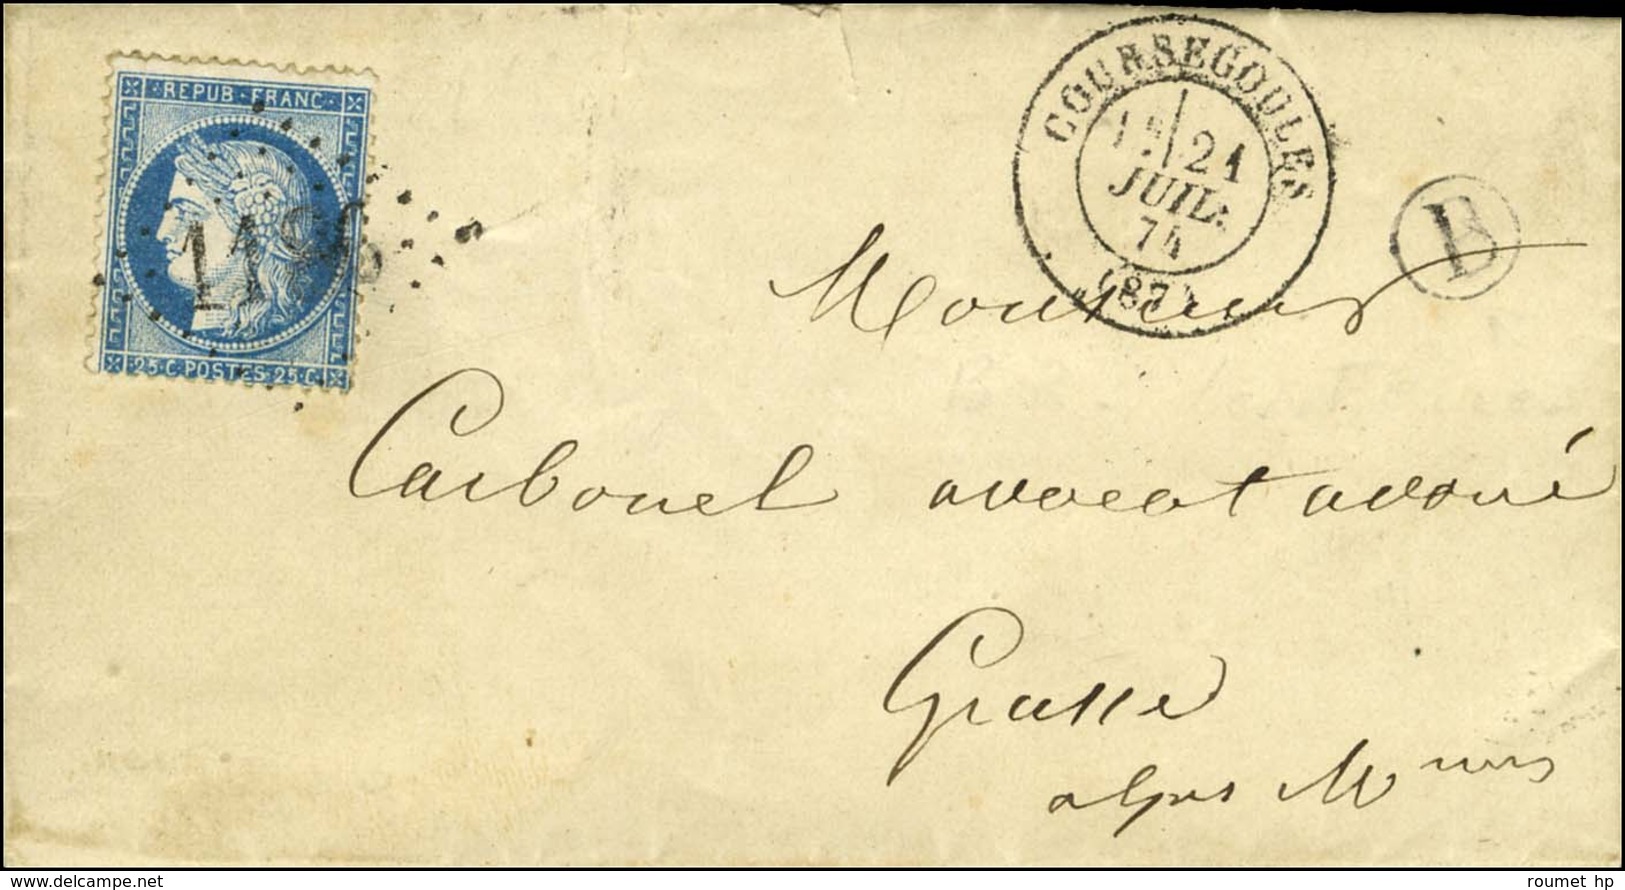 REPUB·FRANC
1186
25·C·POSTES·25·C
COURSEGOULES
1E 21
JUIL.
74
(87)
B
Monsieur
Carbonel avocat avoué
Grasse
alpes Mmes
delcampe.net
roumet hp